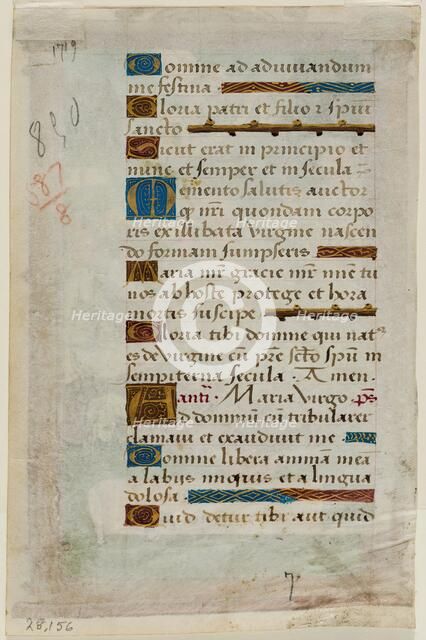 1719
Domine ad adiuuandum
me festina
Gloria patri et filio ⁊ spũi
sancto
Sicut erat in principio et
nunc et semper et in secula
Memento salutis auctor
qp nr̃i quondam corpo
ris ex illibata virgine nascen
do formam sumpseris
Maria mr̃ gracie mr̃ mie tu
nos ab hoste protege et hora
mortis suscipe
Gloria tibi domine qui natꝰ
es de virgine cũ pr̃e scto spũ in
sempiterna secula. Amen.
anti. Maria Virgo ps
Ad dominũ cũ tribularer
clamaui et exaudiuit me
Domine libera animam mea
a labijs iniquis et a lingua
dolosa
Quid detur tibi aut quid
7
28,156
Heritage
Heritage
Heritage
Heritage
Heritage
Heritage
Heritage
Heritage